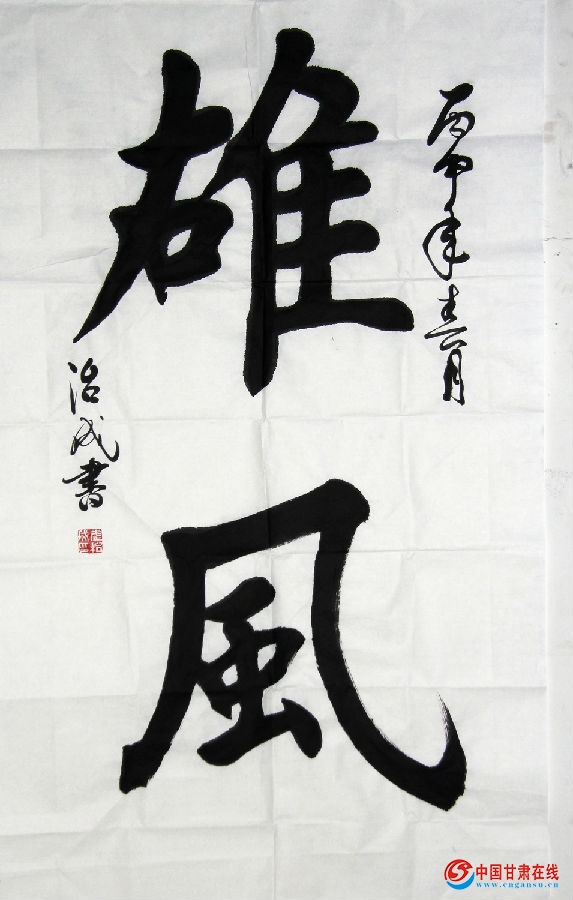 雄風
丙申年喜月
治成書
中国甘肃在线
www.cngansu.cn